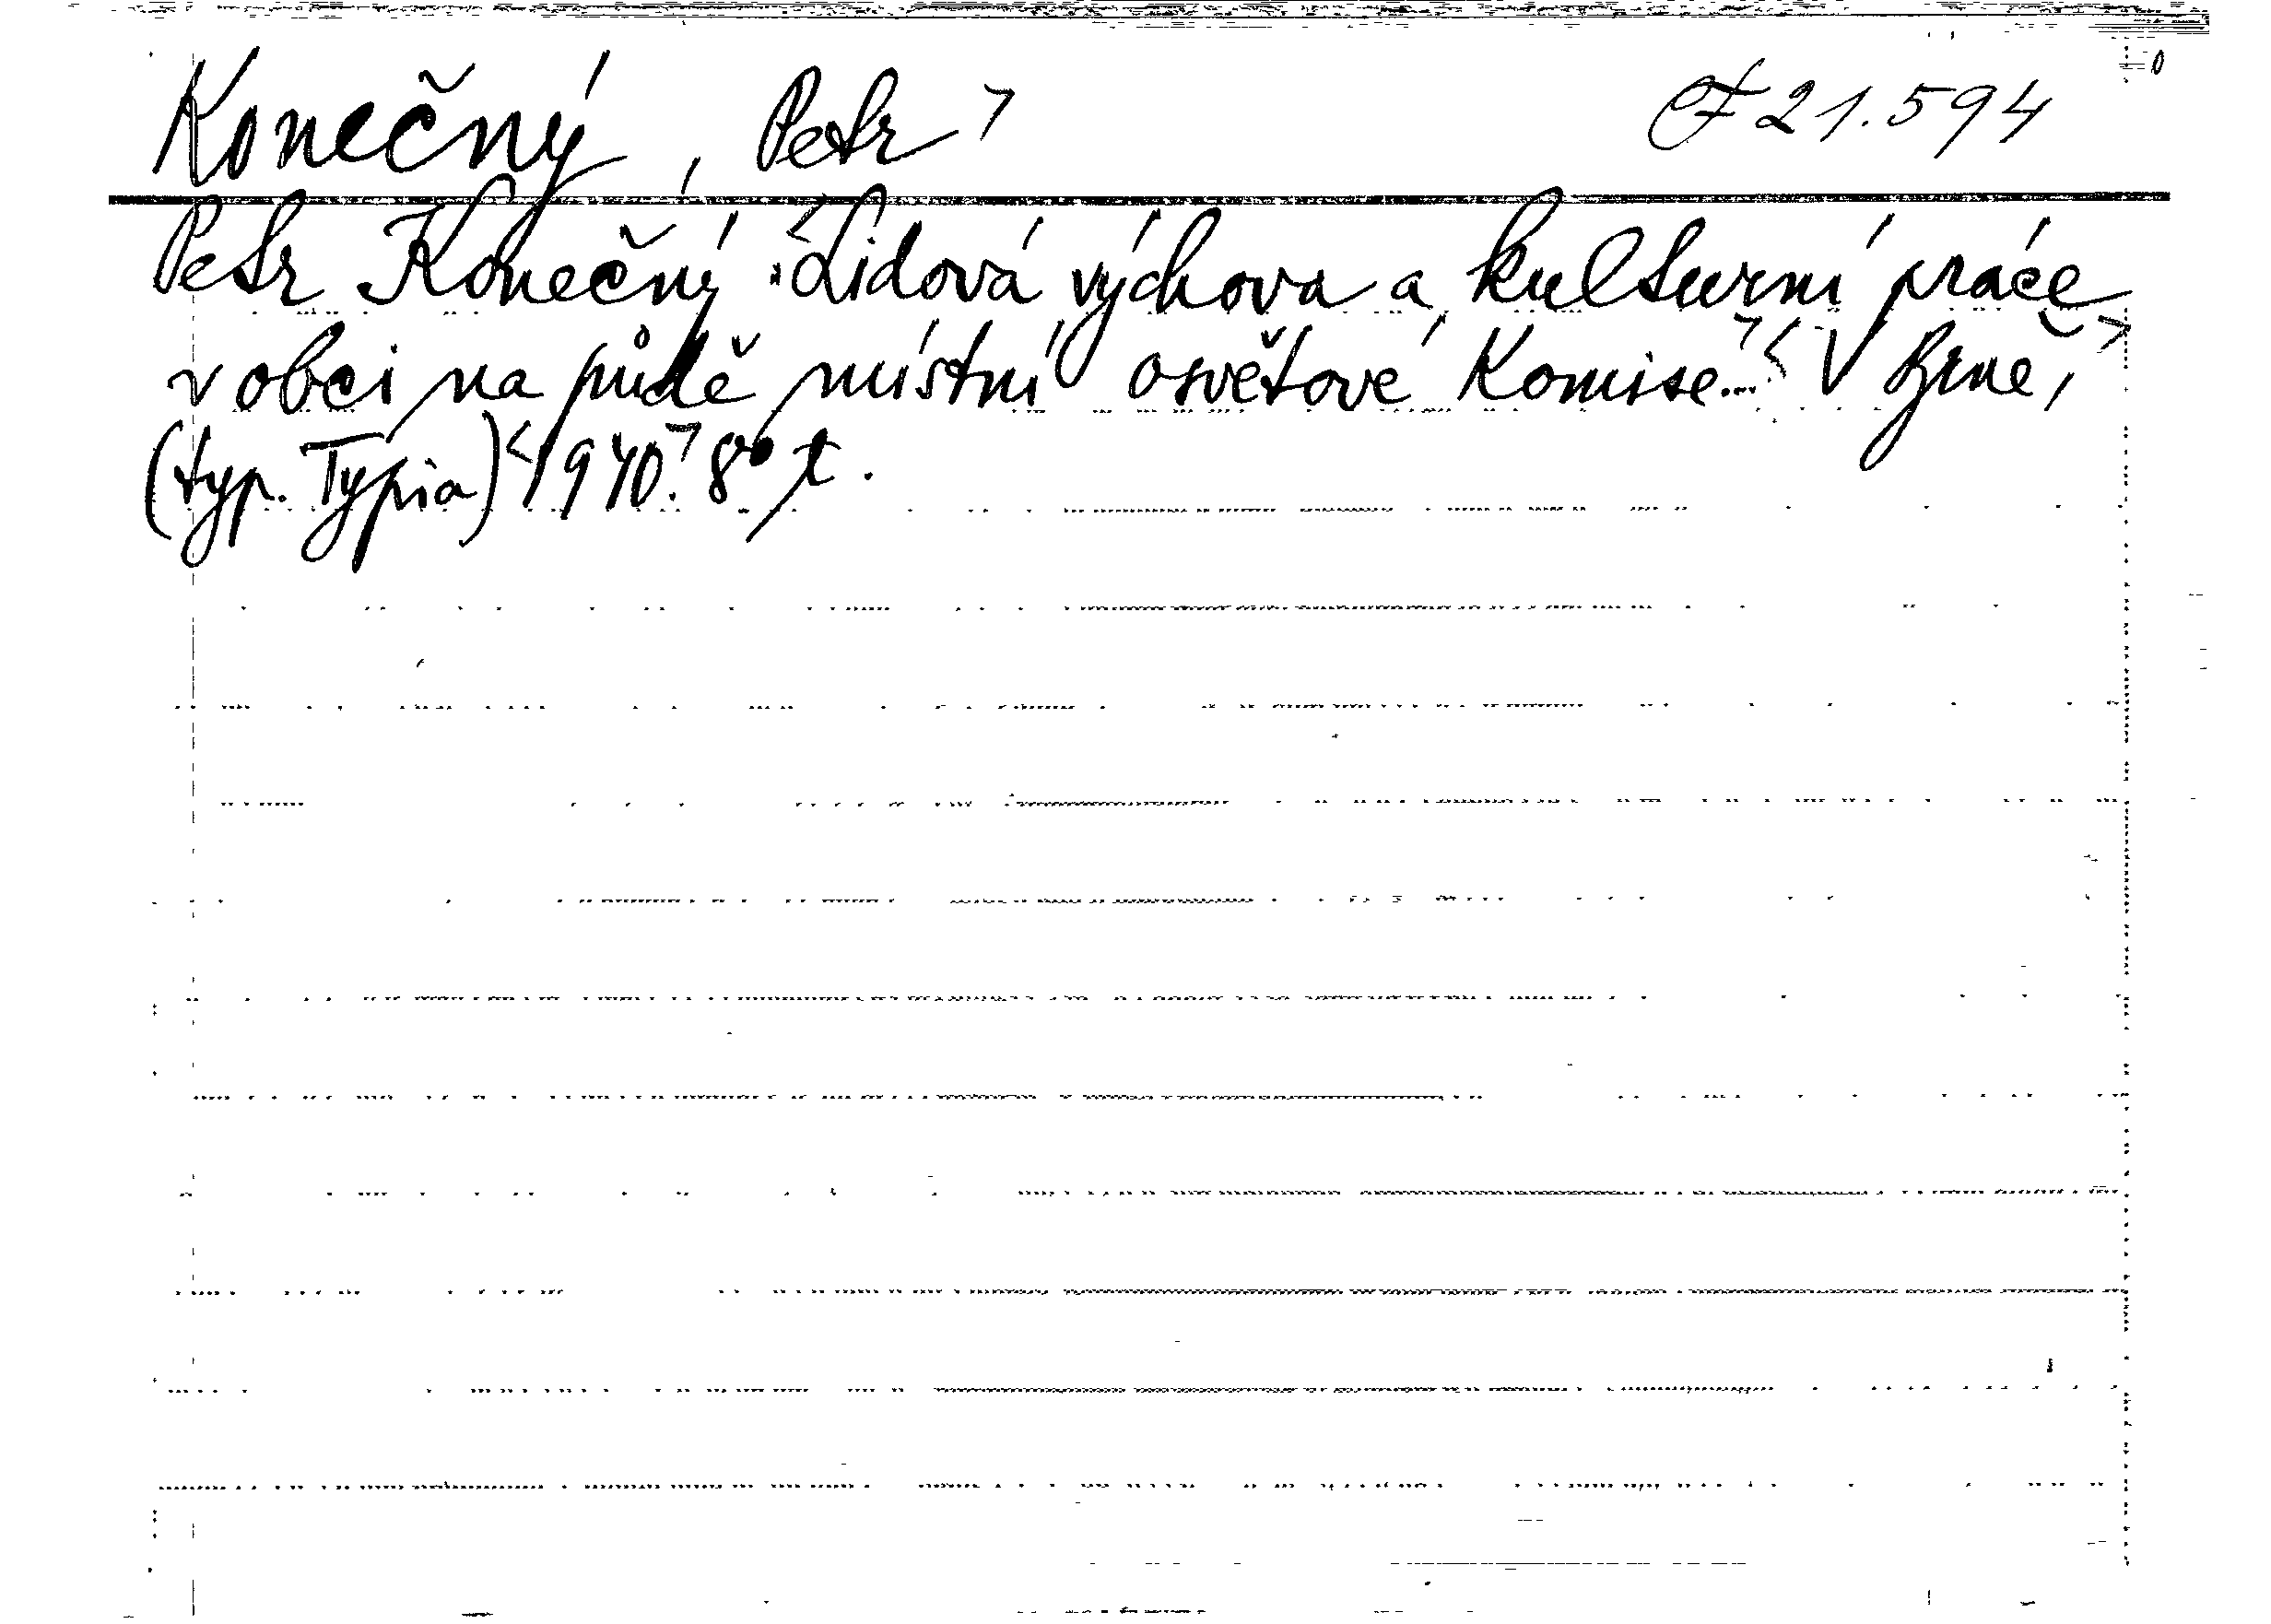 Konečný, Petr CF 21.594
Petr Konečný: Lidová výchova a kulturní práce
v obci na půdě místní osvětové komise... V Brně,
(typ. Typia) 1940. 8° t.